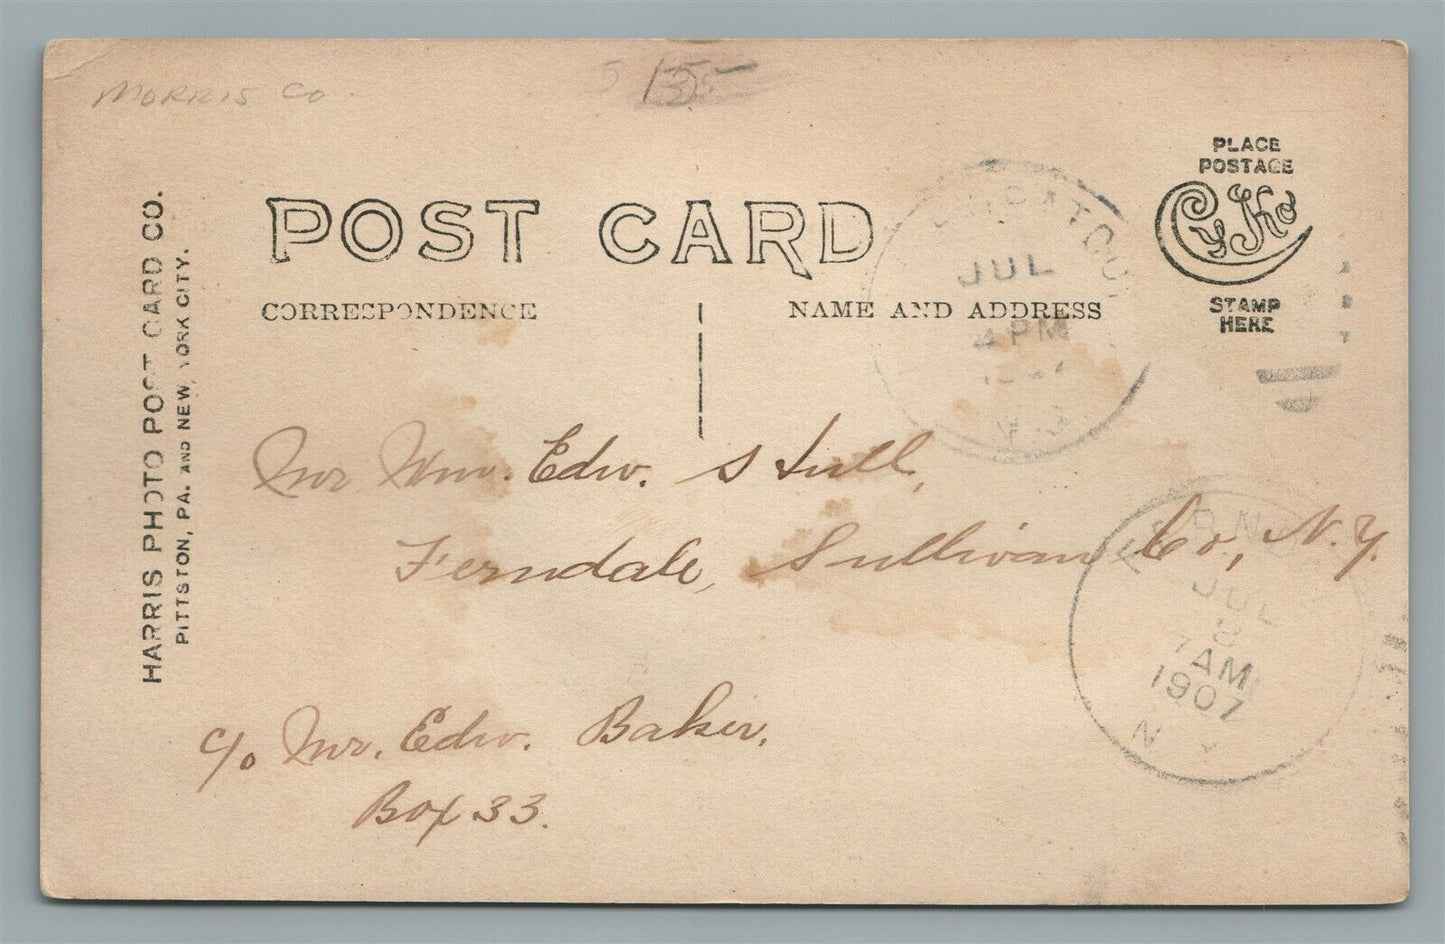 MORRIS CO
135
HARRIS PHOTO POST CARD CO.
PITTSTON, PA. AND NEW YORK CITY.
POST CARD
CORRESPONDENCE
NAME AND ADDRESS
PLACE
POSTAGE
CYKO
STAMP
HERE
JUL
4 PM
N.J.
Mr Wm. Edw. Stull,
Ferndale, Sullivan Co, N.Y.
JUL
8
7 AM
1907
N Y
c/o Mr. Edw. Baker,
Box 33.